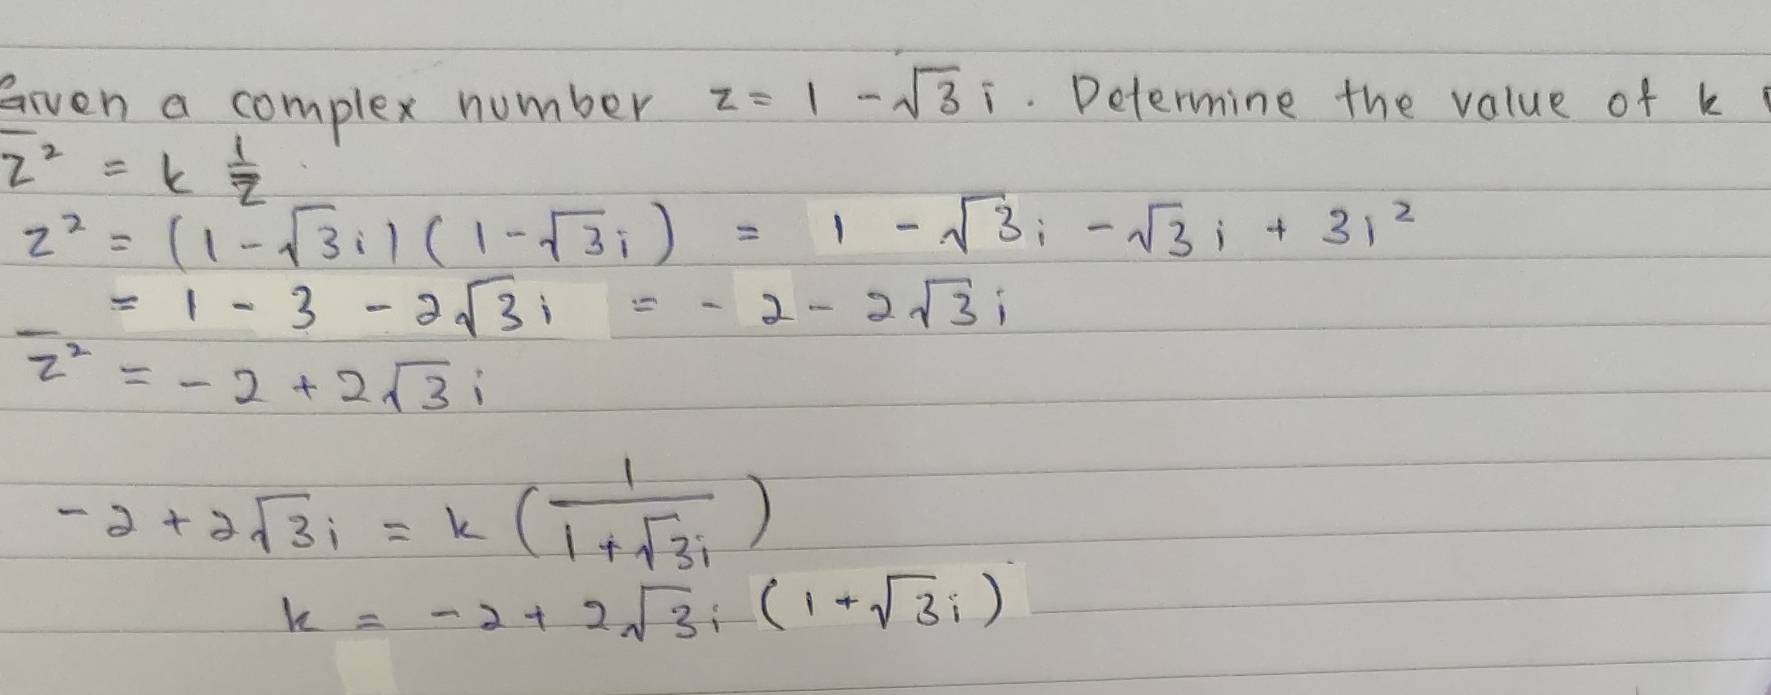 Given a complex number z = 1 - √3 i. Determine the value of k
z̅² = k 1/z̅
z² = (1 - √3 i) (1 - √3 i) = 1 - √3 i - √3 i + 3i²
= 1 - 3 - 2√3 i = - 2 - 2√3 i
z̅² = - 2 + 2√3 i
- 2 + 2√3 i = k (1/(1 + √3 i))
k = - 2 + 2√3 i (1 + √3 i)